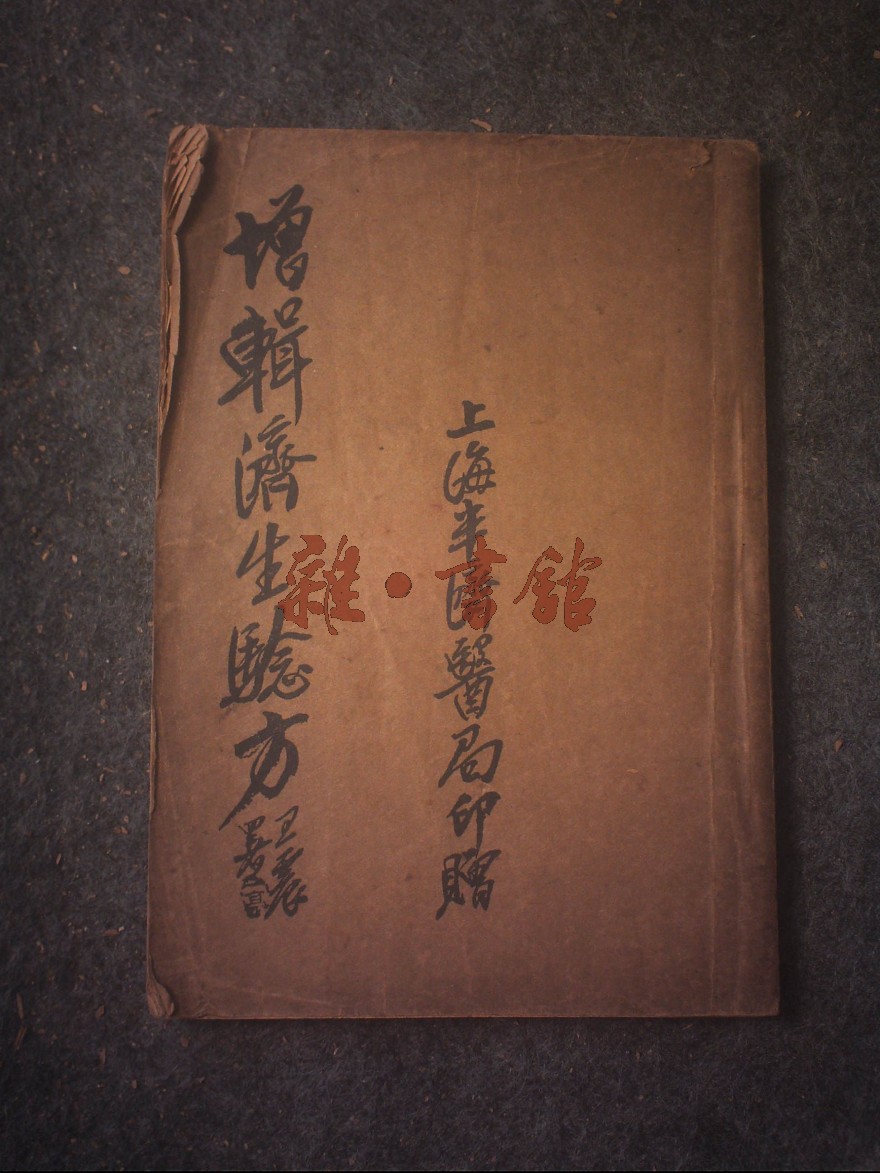 上海半濟醫局印贈
增輯濟生驗方
王震署
雜·書館